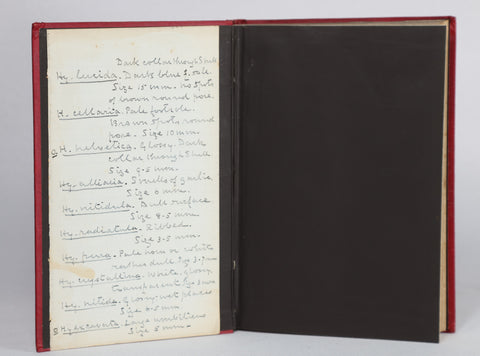 Dark collar through Shell.
Hy. lucida. Dark blue
Size 15 mm. no Spots
of brown round pore.
H. cellaria. Pale footsole.
Brown Spots round
pore. Size 10 mm.
H. helvetica. Glossy. Dark
collar through Shell.
Size 9.5 mm.
Hy. alliaria. Smells of garlic.
Size 6 mm.
Hy. nitidula. Dull surface
Size 8.5 mm.
Hy. radiatula. Ribbed.
Size 3.5 mm.
Hy. pura. Pale horn or white
rather dull
Hy. crystallina. White, glossy,
transparent
Hy. nitida. Glossy, wet places
Size
Hy excavata. Large umbilicus
Size 5 mm.